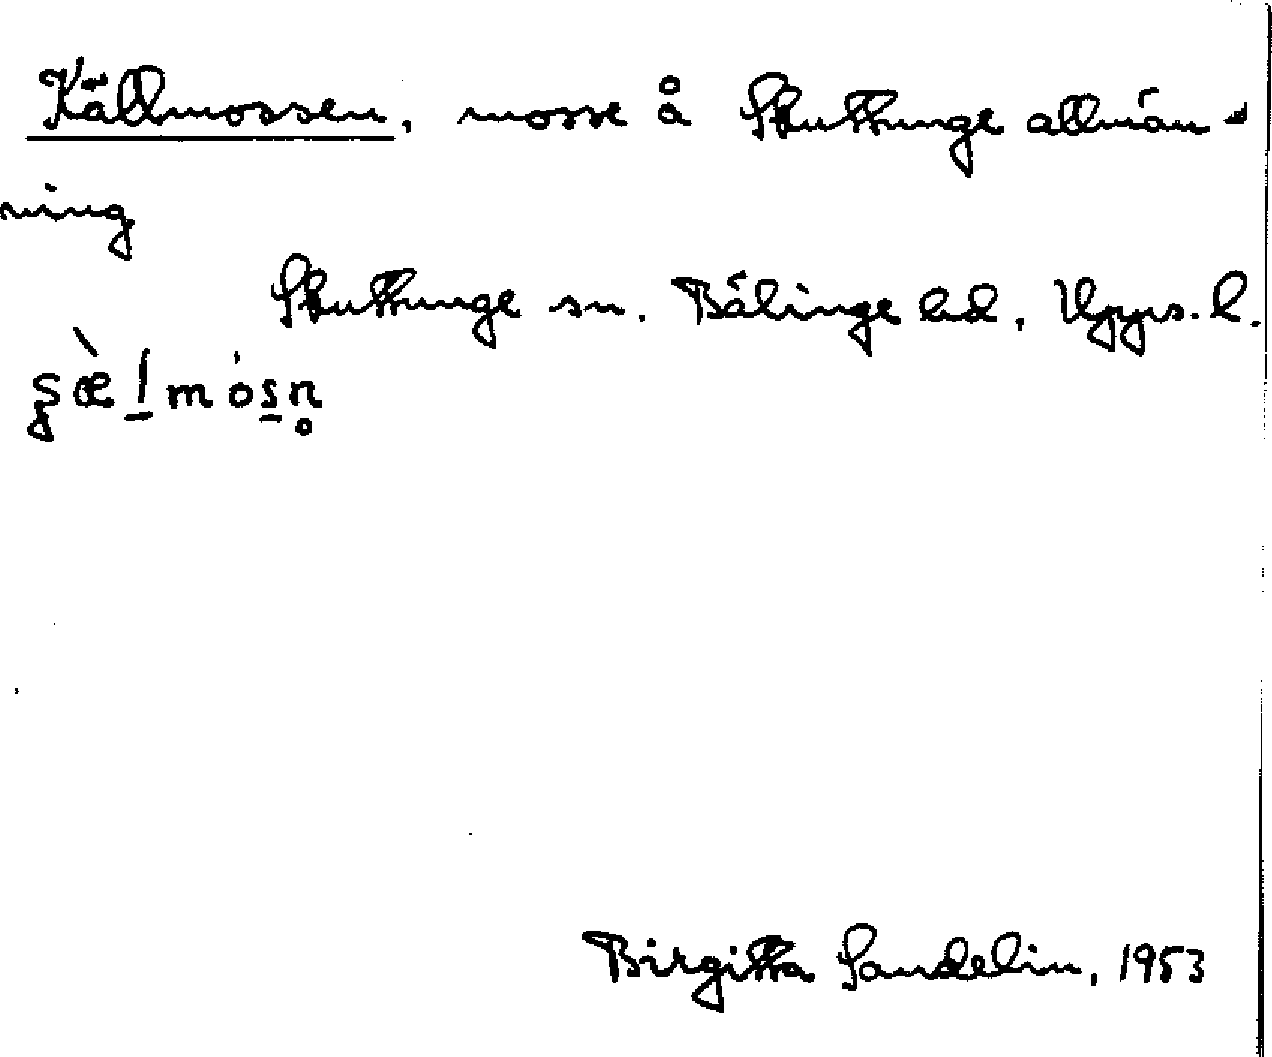 Källmossen, mosse å Skuttunge allmän-
ning
Skuttunge sn. Bälinge hd. Upps. l.
s̨æ̀l̲mósn̥
Birgitta Sandelin, 1953